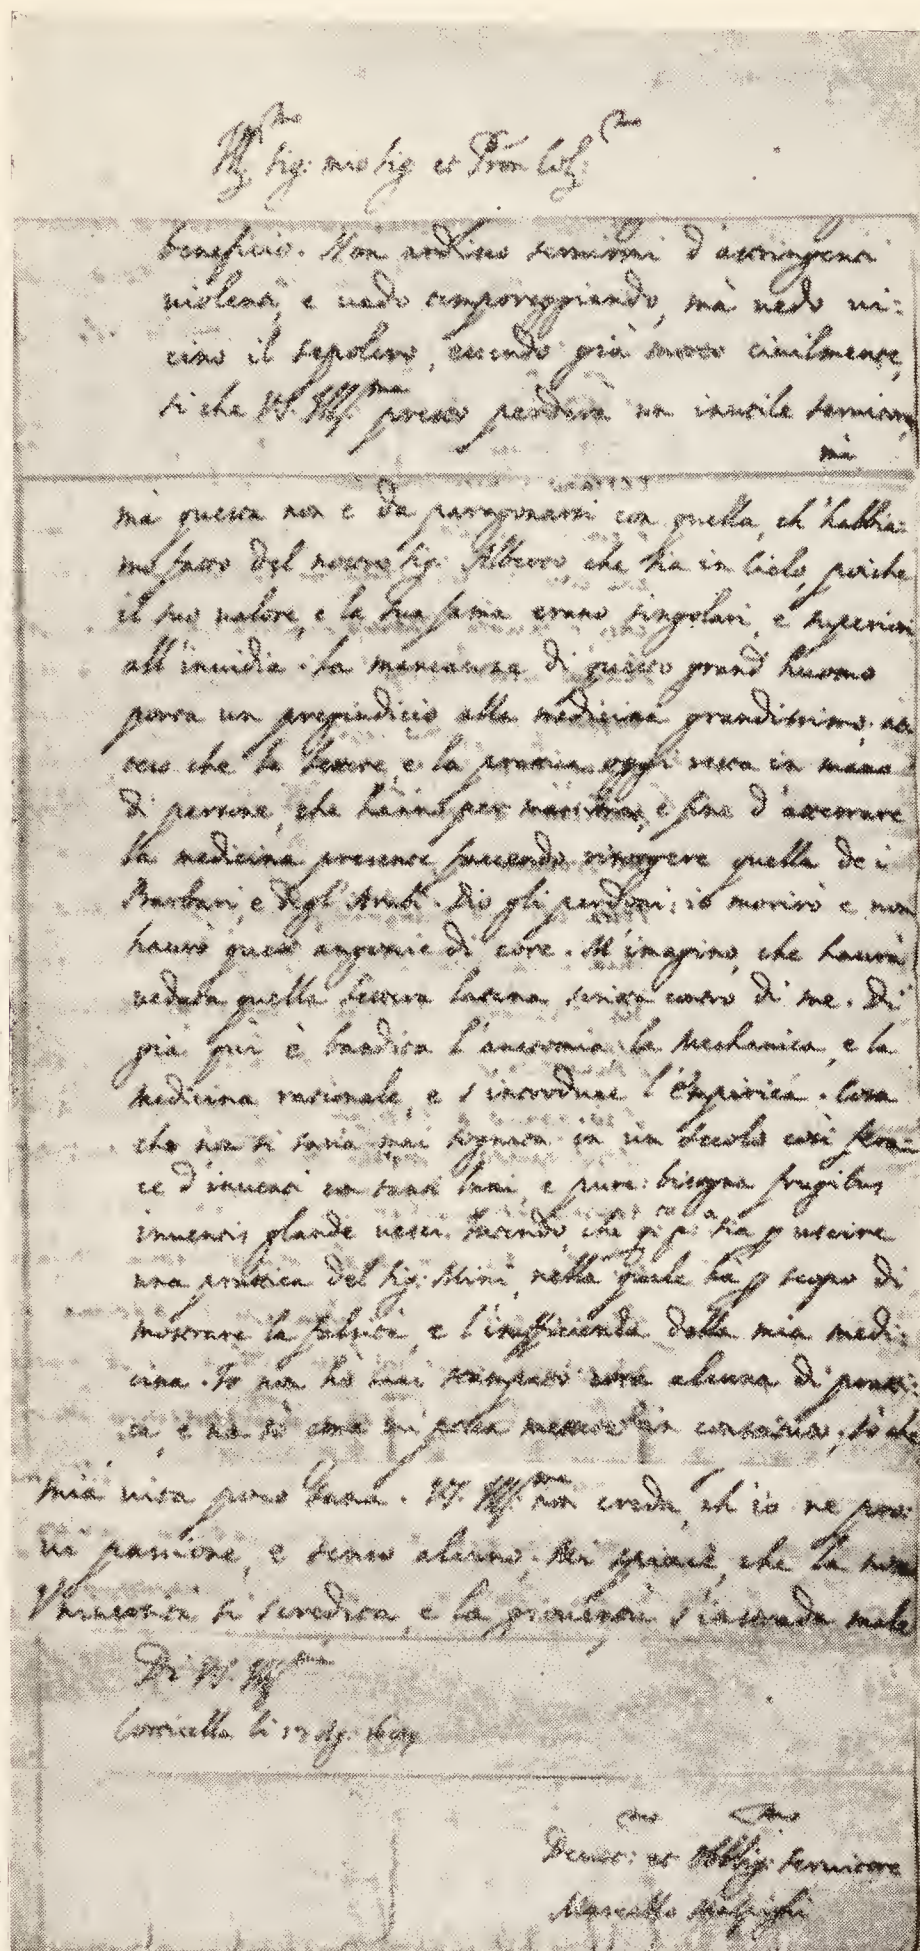 Ill.mo Sig: mio Sig. et Pron Col:mo
beneficio. Non ardisco seruirmi d'astringenti
uiolenti, e uado temporeggiando, mà uedo ui=
cino il sepolcro, essendo già morto ciuilmente,
si che V.S. Ill.ma presto perderà un inutile seruitore,
mà
mà questa non è da paragonarsi con quella, ch'habbia=
mo fatto del nostro Sig. Alberto, che sia in Cielo, poiche
il suo ualore, e la sua fama erano singolari, e superiori
all'inuidia. La mancanza di questo grand'huomo
porta un pregiudicio alla medicina grandissimo, at
teso che le lettere, e la pratica oggi resta in mano
di persone, che hanno per massima, e fine d'atterrare
la medicina presente facendo risorgere quella de i
Barbari, e degl'Arabi. Dio gli perdoni; io morirò e non
haurò queste angonie di core. M'imagino, che haurà
ueduta quella lettera latina scritta contro di me. Di
già quì è bandita l'anatomia, la Mechanica, e la
medicina rationale, e s'introduce l'Empirica. Cosa
che non si saria mai sognata in un secolo così fera=
ce d'inuenti con tanti lumi, e pure bisogna frugibus
inuentis glande uesci. Intendo, che sia p uscire
una pratica del Sig: Mini, nella quale hà p scopo di
mostrare la falsità, e l'insufficienza della mia medi=
cina. Io non hò mai stampato cosa alcuna di prati=
ca, e no sò come mi possa mettere in contradittorio; sò che
mia uita poco dura. V.S. Ill.ma non creda, ch'io ne pro=
ui passione, e senso alcuno. Mi spiace, che la nostra
Vniuersità si scredita, e la giouentù s'instrada male
Di V.S. Ill.ma
Corticella li 17 Ag.
Deuot:mo et Obblig:mo Seruitore
Marcello Malpighi